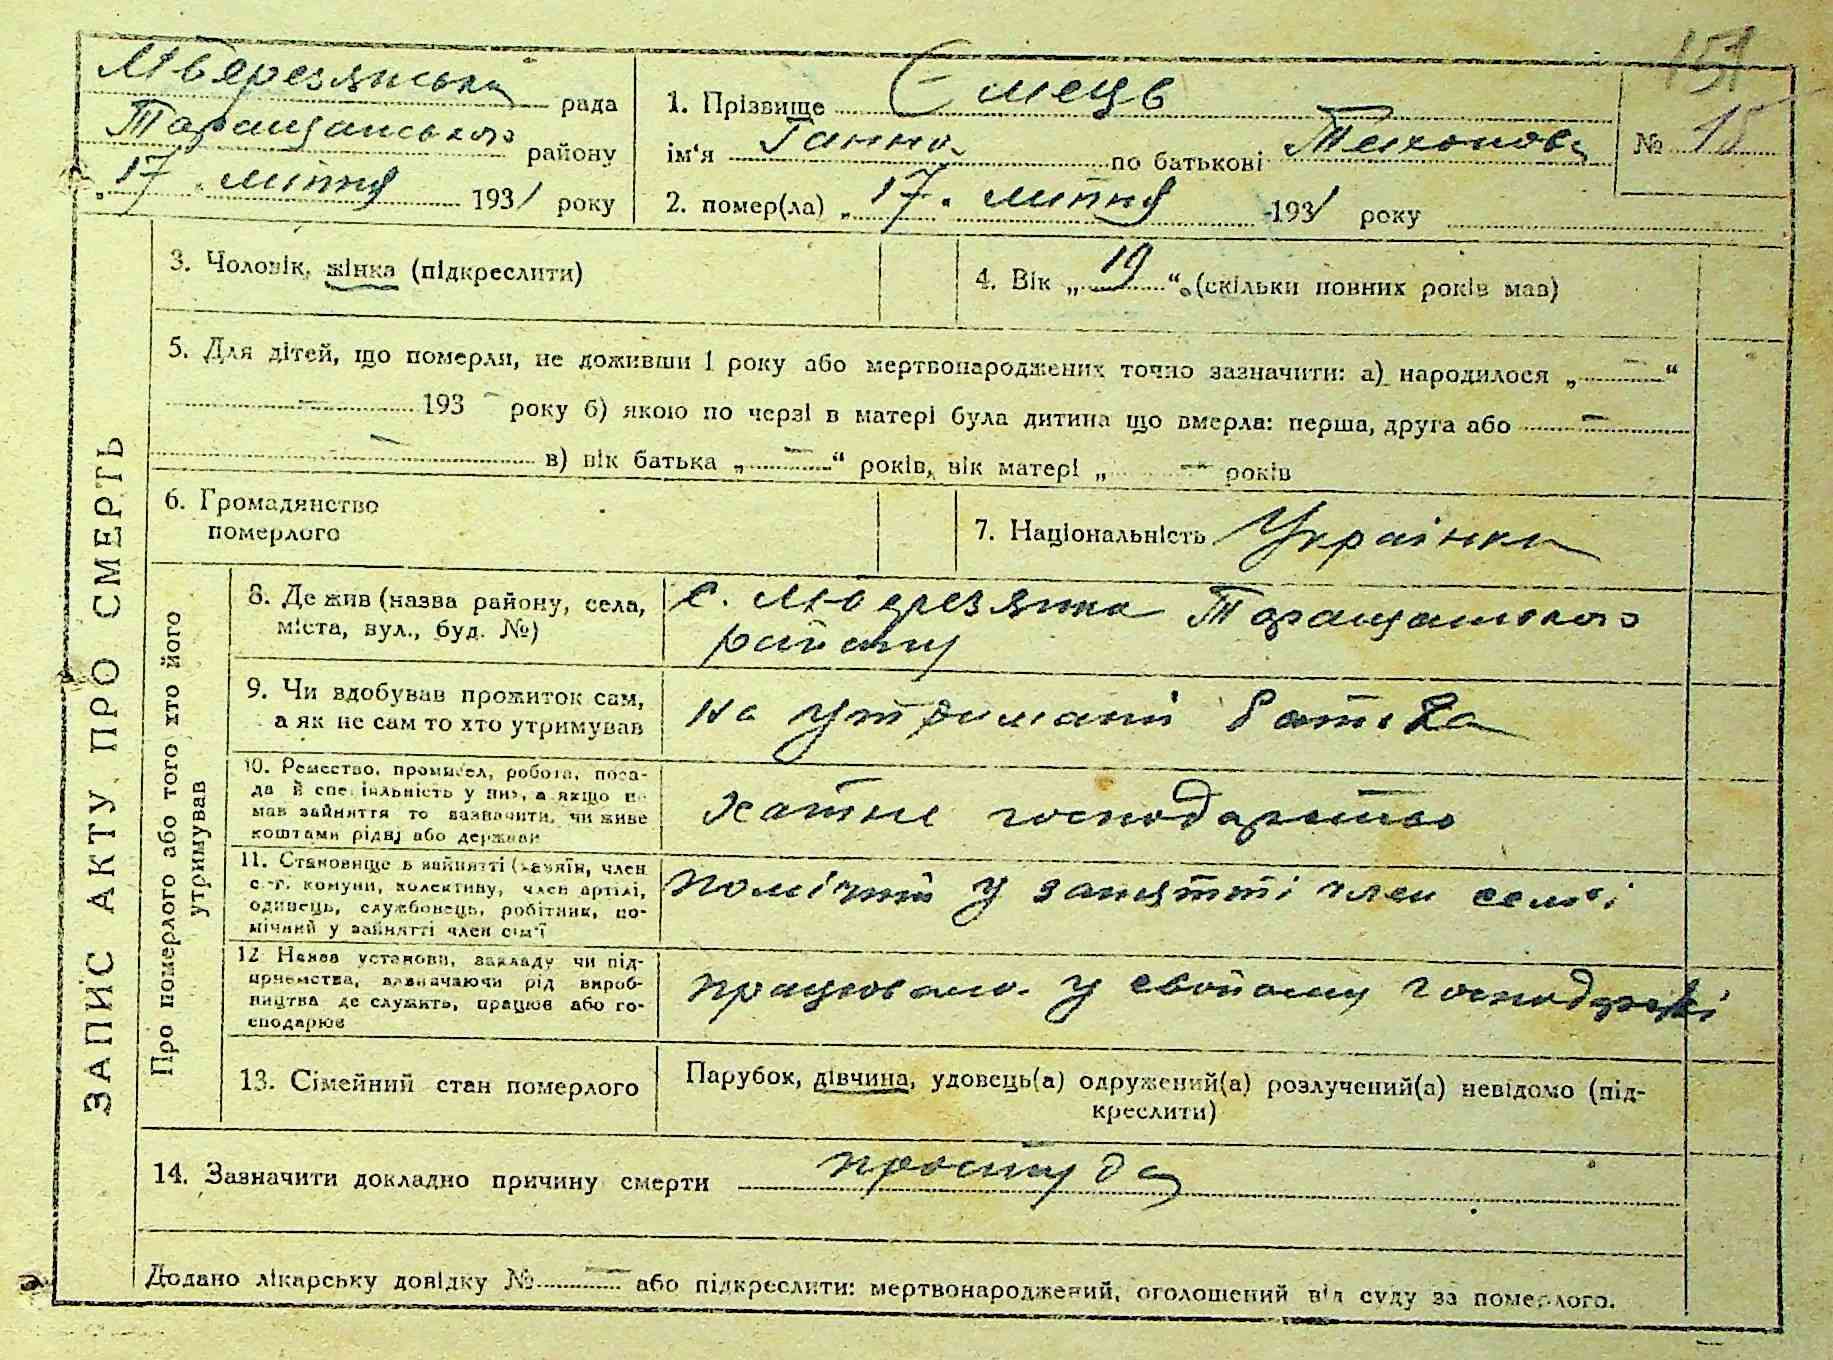 151
Люберезянська рада
Таращанського району
„17“ липня 1931 року
1. Прізвище Ємець
ім'я Ганна по батькові Тихонова
2. помер(ла) „17“ липня 1931 року
№ 15
ЗАПИС АКТУ ПРО СМЕРТЬ
3. Чоловік, жінка (підкреслити)
4. Вік „19“ (скільки повних років мав)
5. Для дітей, що померли, не доживши 1 року або мертвонароджених точно зазначити: а) народилося „—“
— 193— року б) якою по черзі в матері була дитина що вмерла: перша, друга або —
— в) вік батька „—“ років, вік матері „— років
6. Громадянство
померлого
7. Національність Українка
Про померлого або того хто його
утримував
8. Де жив (назва району, села,
міста, вул., буд. №)
с. Таращанського
району
9. Чи вдобував прожиток сам,
а як не сам то хто утримував
на утримані батька
10. Ремество, промисел, робота, поса-
да й спеціяльність у них, а якщо не
мав зайняття то вазначити, чи живе
коштами рідні або держави
хатнє господарство
11. Становище в зайнятті (хазяїн, член
с.-г. комуни, колективу, член артілі,
одинець, службовець, робітник, по-
мічний у зайнятті член сім'ї
помічний у занятті член семʼі
12 Назва установи, закладу чи під-
приємства, вазначаючи рід вироб-
ництва де служить, працює або го-
сподарює
працювала у свойому господарстві
13. Сімейний стан померлого
Парубок, дівчина, удовець(а) одружений(а) розлучений(а) невідомо (під-
креслити)
14. Зазначити докладно причину смерти простуда
Додано лікарську довідку №— або підкреслити: мертвонароджений, оголошений від суду за померлого.